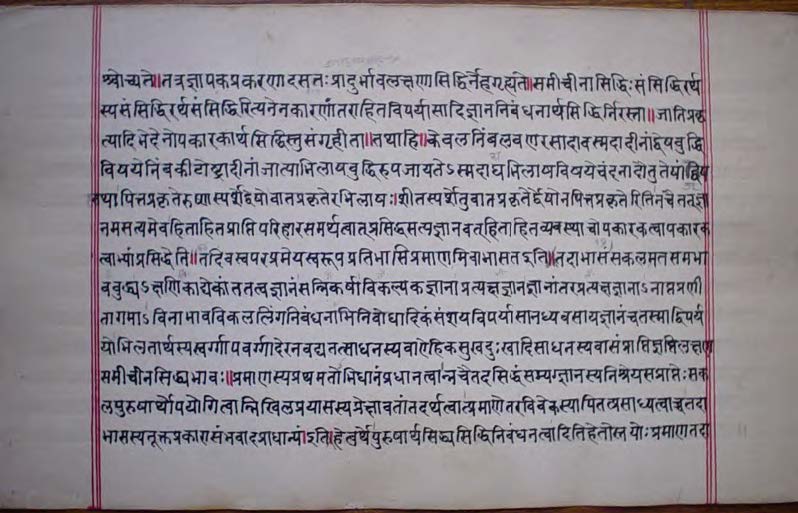 श्वोच्यते॥तत्रज्ञापकप्रकरणादसतःप्रादुर्भावलक्षणासिद्धिर्नेहगृह्यते॥समीचीनासिद्धिःसंसिद्धिरर्थ
स्यसंसिद्धिरर्थसंसिद्धिरित्यनेनकारणांतराहितविपर्यासादिज्ञाननिबंधनार्थसिद्धिर्निरस्ता॥जातिप्रकृ
त्यादिभेदेनोपकारकार्थसिद्धिस्तुसंगृहीता॥तथाहि॥केवलनिंबलवणरसादावस्मदादीनांद्वेषबुद्धि
विषयेनिंबकीटोष्ट्रादीनांजात्याभिलाषबुद्धिरुपजायतेऽस्मदाद्यभिलाषविषयेचंदनादौतुतेषांद्वेष
तथापित्तप्रकृतेरुष्णस्पर्शेद्वेषोवातप्रकृतेरभिलाषः॥शीतस्पर्शेतुवातप्रकृतेर्द्वेषोनपित्तप्रकृतेरितिनचैतज्ज्ञा
नमसत्यमेवहिताहितप्राप्तिपरिहारसमर्थत्वात्प्रसिद्धसत्यज्ञानवत्हिताहितव्यवस्थाचोपकारकत्वापकारक
त्वाभ्यांप्रसिद्धेति॥तदिवस्वपरप्रमेयस्वरूपप्रतिभासिप्रमाणमिवाभासतइति॥तदाभासंसकलमतसमता
वबुद्ध्यऽक्षणिकाद्येकांततत्वज्ञानंसन्निकर्षाविकल्पकज्ञानाप्रत्यक्षज्ञानज्ञानांतरप्रत्यक्षज्ञानाऽनाप्तप्रणी
तागमाऽविनाभावविकललिंगनिबंधनाभिनिबोधादिकंसंशयविपर्यासानध्यवसायज्ञानंचतस्माद्विपर्य
योभिलषितार्थस्यस्वर्ग्गापवर्ग्गादेरनवद्यतत्साधनस्यवाऐहिकसुखदुःखादिसाधनस्यवासंप्राप्तिज्ञप्तिलक्षण
समीचीनसिद्ध्यभावः॥प्रमाणस्यप्रथमतोभिधानंप्रधानत्वान्नचैतदसिद्धंसम्यग्ज्ञानस्यनिश्रेयसप्राप्तेःसक
लपुरुषार्थोपयोगित्वान्निखिलप्रयासस्यप्रेक्षावतांतदर्थत्वात्प्रमाणेतरविवेकस्यापितत्प्रसाध्यत्वाच्चतदा
भासस्यतूक्तप्रकारासंभवादप्राधान्यं॥इति॥हेत्वर्थेपुरुषार्थसिद्ध्यसिद्धिनिबंधनत्वादितिहेतोस्तयोःप्रमाणतदा